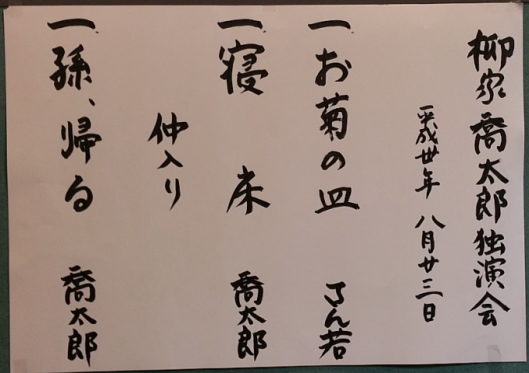 柳家喬太郎独演会
平成卅年 八月廿三日
一 お菊の皿 さん若
一 寝床 喬太郎
仲入り
一 孫、帰る 喬太郎